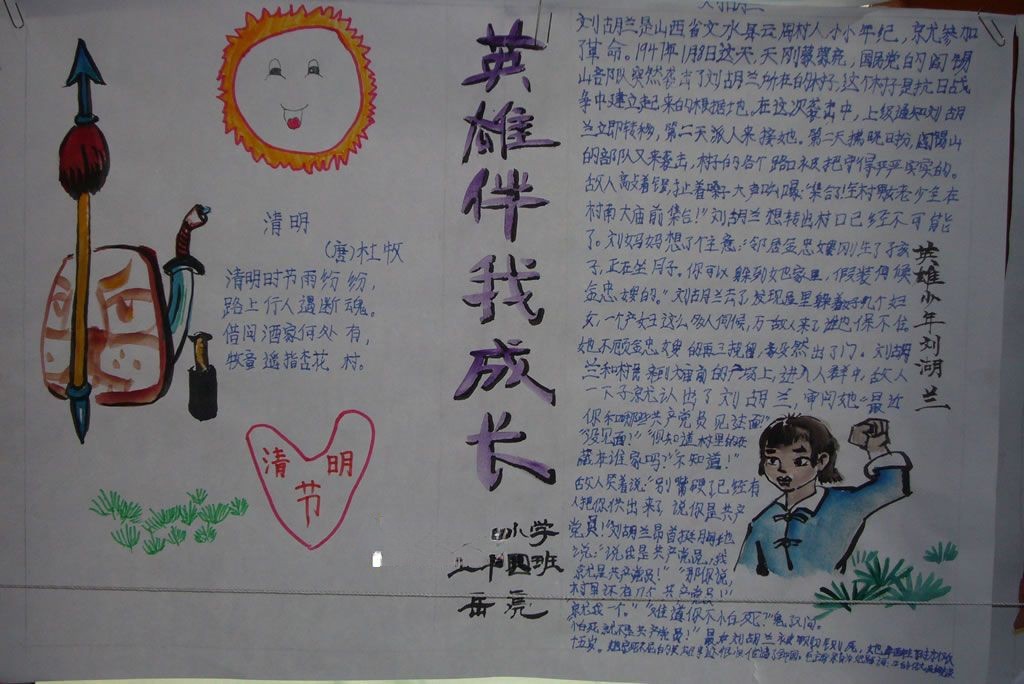 清明
(唐)杜牧
清明时节雨纷纷,
路上行人遇断魂。
借问酒家何处有,
牧童遥指杏花村。
清明
节
英雄伴我成长
小学
四班
岳亮
刘胡兰
刘胡兰是山西省文水县云周村人,小小年纪,就参加
了革命。1947年1月8日这天,天刚蒙蒙亮,国民党的阎锡
山部队突然袭击了刘胡兰所在的村子,这个村子是抗日战
争中建立起来的根据地,在这次袭击中,上级通知刘胡
兰立即转移,第二天派人来接她。第二天拂晓时份,阎锡山
的部队又来袭击,村子的各个路口被把守得严严实实的。
敌人敲着锣,扯着嗓子大声叫嚷:“集合!全村男女老少全在
村南大庙前集合!”刘胡兰想转出村口已经不可能
了。刘妈妈想了个主意:“邻居金忠嫂刚生了孩
子,正在坐月子。你可以躲到她家里,假装伺候
金忠嫂的。”刘胡兰去了发现屋里躲着好几个妇
女,一个产妇这么多人伺候,万一敌人来了谁也保不住,
她不顾金忠嫂的再三规留,毅然出了门。刘胡
兰和村民来到大庙前的广场上,进入人群中,敌人
一下子就认出了刘胡兰,审问她“最近
你和哪些共产党员见过面”
“没见面!”“你知道村里的
在谁家吗?”“不知道!”
敌人笑着说:“别嘴硬,已经有
人把你供出来了,说你是共产
党员!”刘胡兰昂首挺胸地
说:“说我是共产党员,我
就是共产党员!”“那你说,
村里还有几个共产党员!”
就我一个。”“难道你不怕死?”
怕死就不是共产党员!”
十五岁。
英雄少年刘湖兰